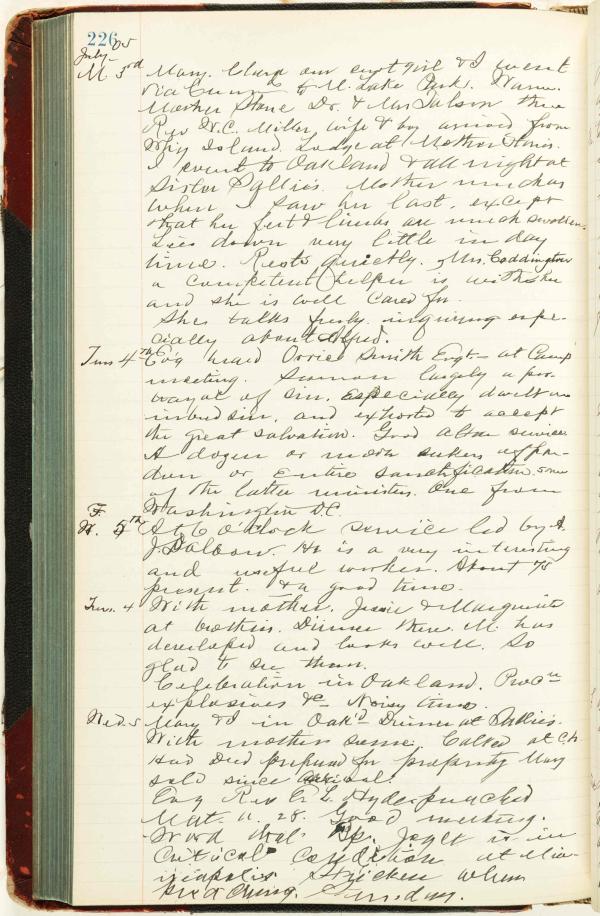 226
July 05
M. 3rd Mary, Clara our east girl & I went
via Cum to Mt. Lake Park. Warm.
Mother Stone Dr. & Mrs there
Rev W.C. Miller, wife & boy arrived from
Island. Lodge at Mother Stone's.
I went to Oakland & all night at
Sister Sallie's. Mother much as
when I saw her last, except
that her feet & limbs are much swollen.
Lies down very little in day
time. Rests quietly. Mrs. Coddington
a competent helper is with her
and she is well cared for.
She talks freely inquiring espe-
cially about Alfred.
Tues 4th Ev'g heard Orrice Smith Evgt- at Camp
meeting. Sermon largely a por-
trayal of sin. Especially dwelt on
inbred sin, and exhorted to accept
the great salvation. Good altar service.
A dozen or more seekers of par-
don or entire sanctification. some
of the latter ministers. One from
Washington D.C.
W. 5th At 6 O'clock service led by A.
J. Dolbow. He is a very interesting
and useful worker. About 75
present. & a good time.
Tues. 4 With mother. Jessie & Marguerite
at brother's. Dinner there. M. has
developed and looks well. So
glad to see them.
Celebration in Oakland. Proc'n
explosives &c. Noisy time.
Wed. 5 Mary & I in Oak'd Dinner at Sallie's.
With mother some. Called at C.h.
Had Deed prepared for property Mary
sold since arrival.
Evg Rev E. L. Hyde preached
Mat. 11. 28. Good meeting.
Word that Bp. Joyce is in
critical condition at Min-
neapolis Stricken when
preaching. Sunday.